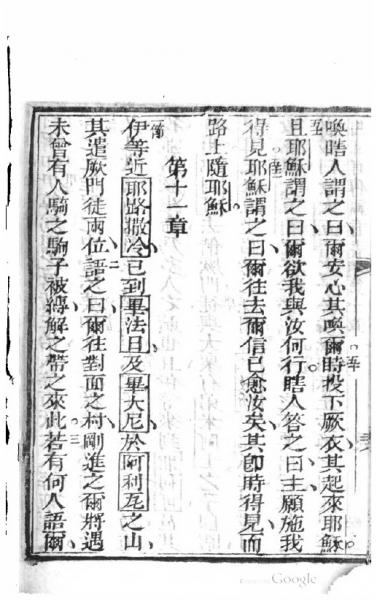 喚瞎人謂之曰、爾安心其喚爾。時投下厥衣、其起來耶穌。
且耶穌謂之曰、爾欲我與汝何行。瞎人答之曰、主願施我
得見。耶穌謂之曰、爾往去爾信已愈汝矣、其即時得見、而
路上隨耶穌。
第十一章
伊等近耶路撒冷、已到畢法日及畢大尼、於阿利瓦之山、
其遣厥門徒兩位、語之曰、爾往對面之村、剛進之爾將遇
未曾有人騎之駒子被縛、解之帶之來此。若有何人語爾、
Google